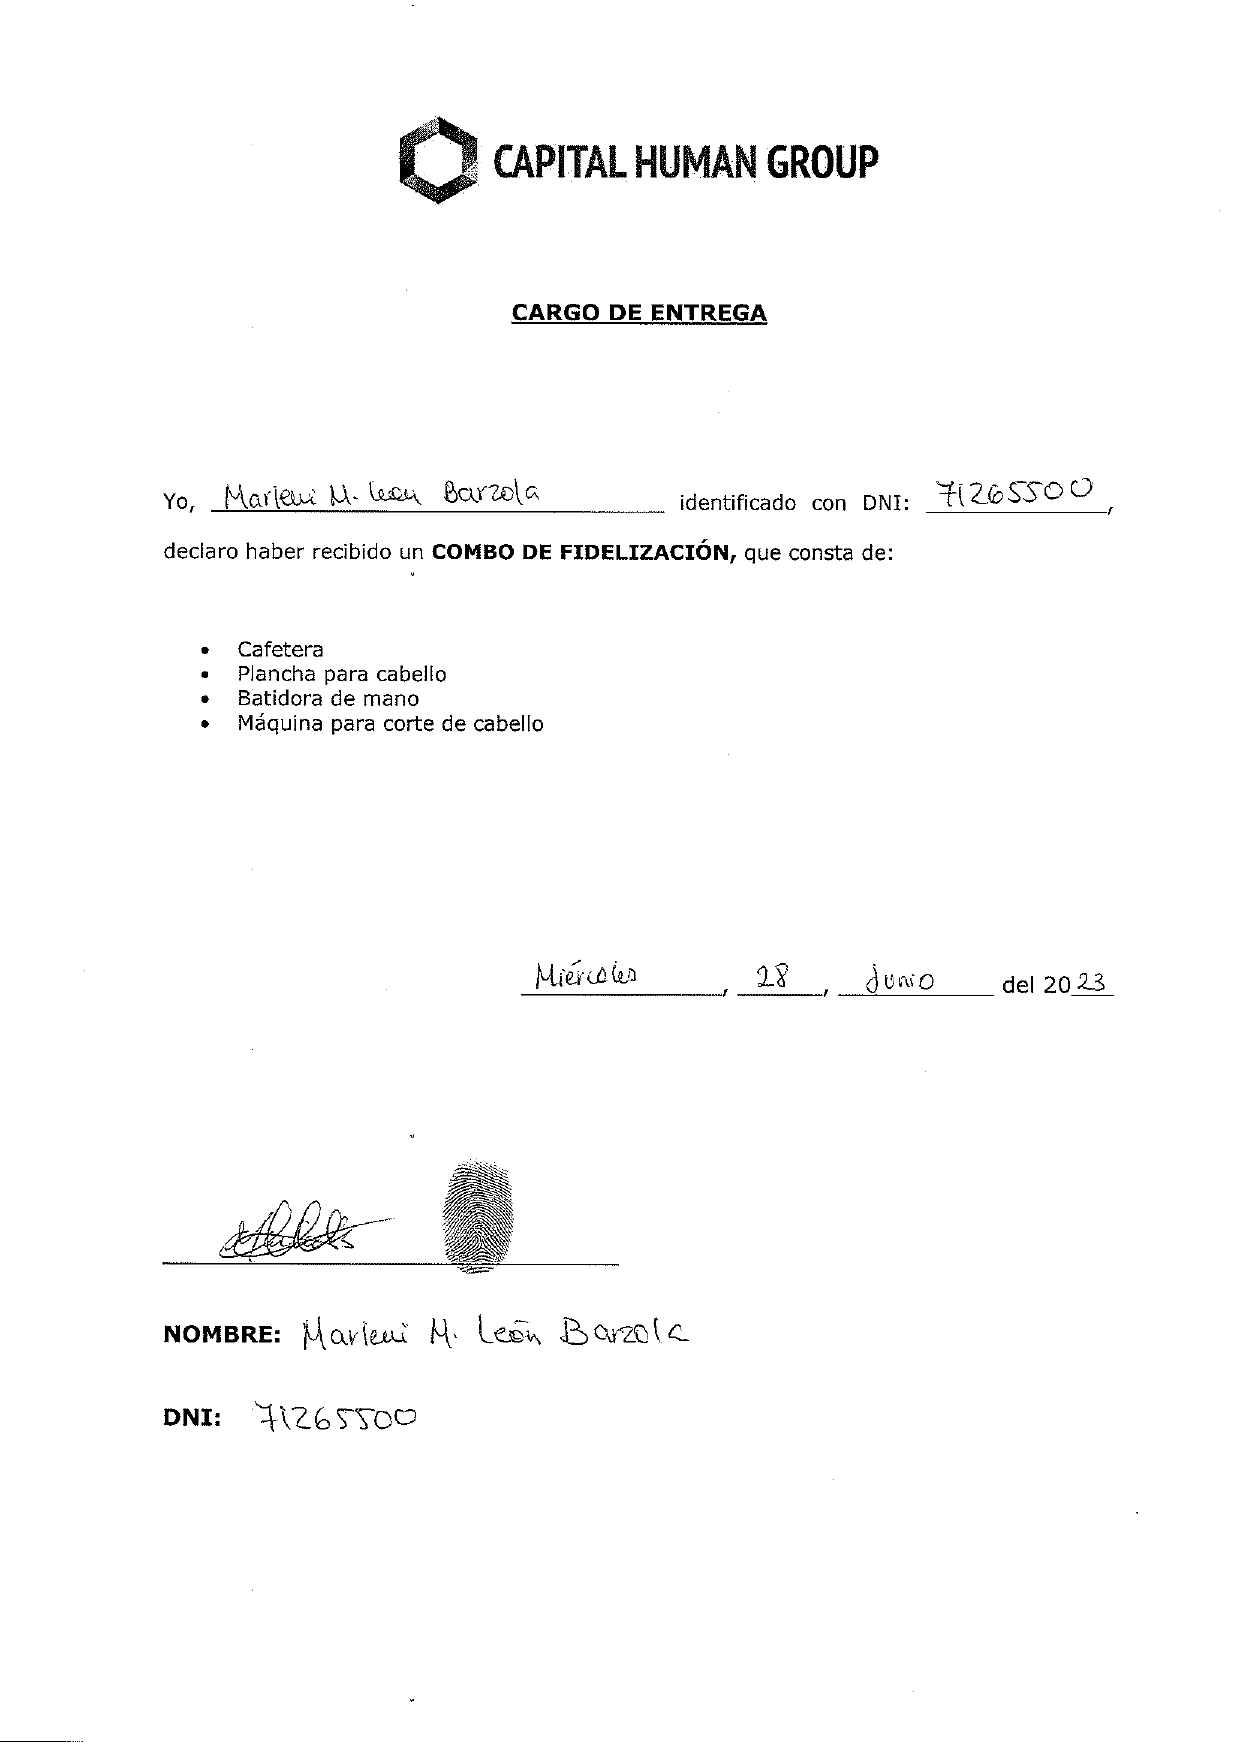 CAPITAL HUMAN GROUP
CARGO DE ENTREGA
Yo, Marleni M. León Barzola identificado con DNI: 71265500,
declaro haber recibido un COMBO DE FIDELIZACIÓN, que consta de:
• Cafetera
• Plancha para cabello
• Batidora de mano
• Máquina para corte de cabello
Miércoles, 28, Junio del 2023
NOMBRE: Marleni M. León Barzola
DNI: 71265500